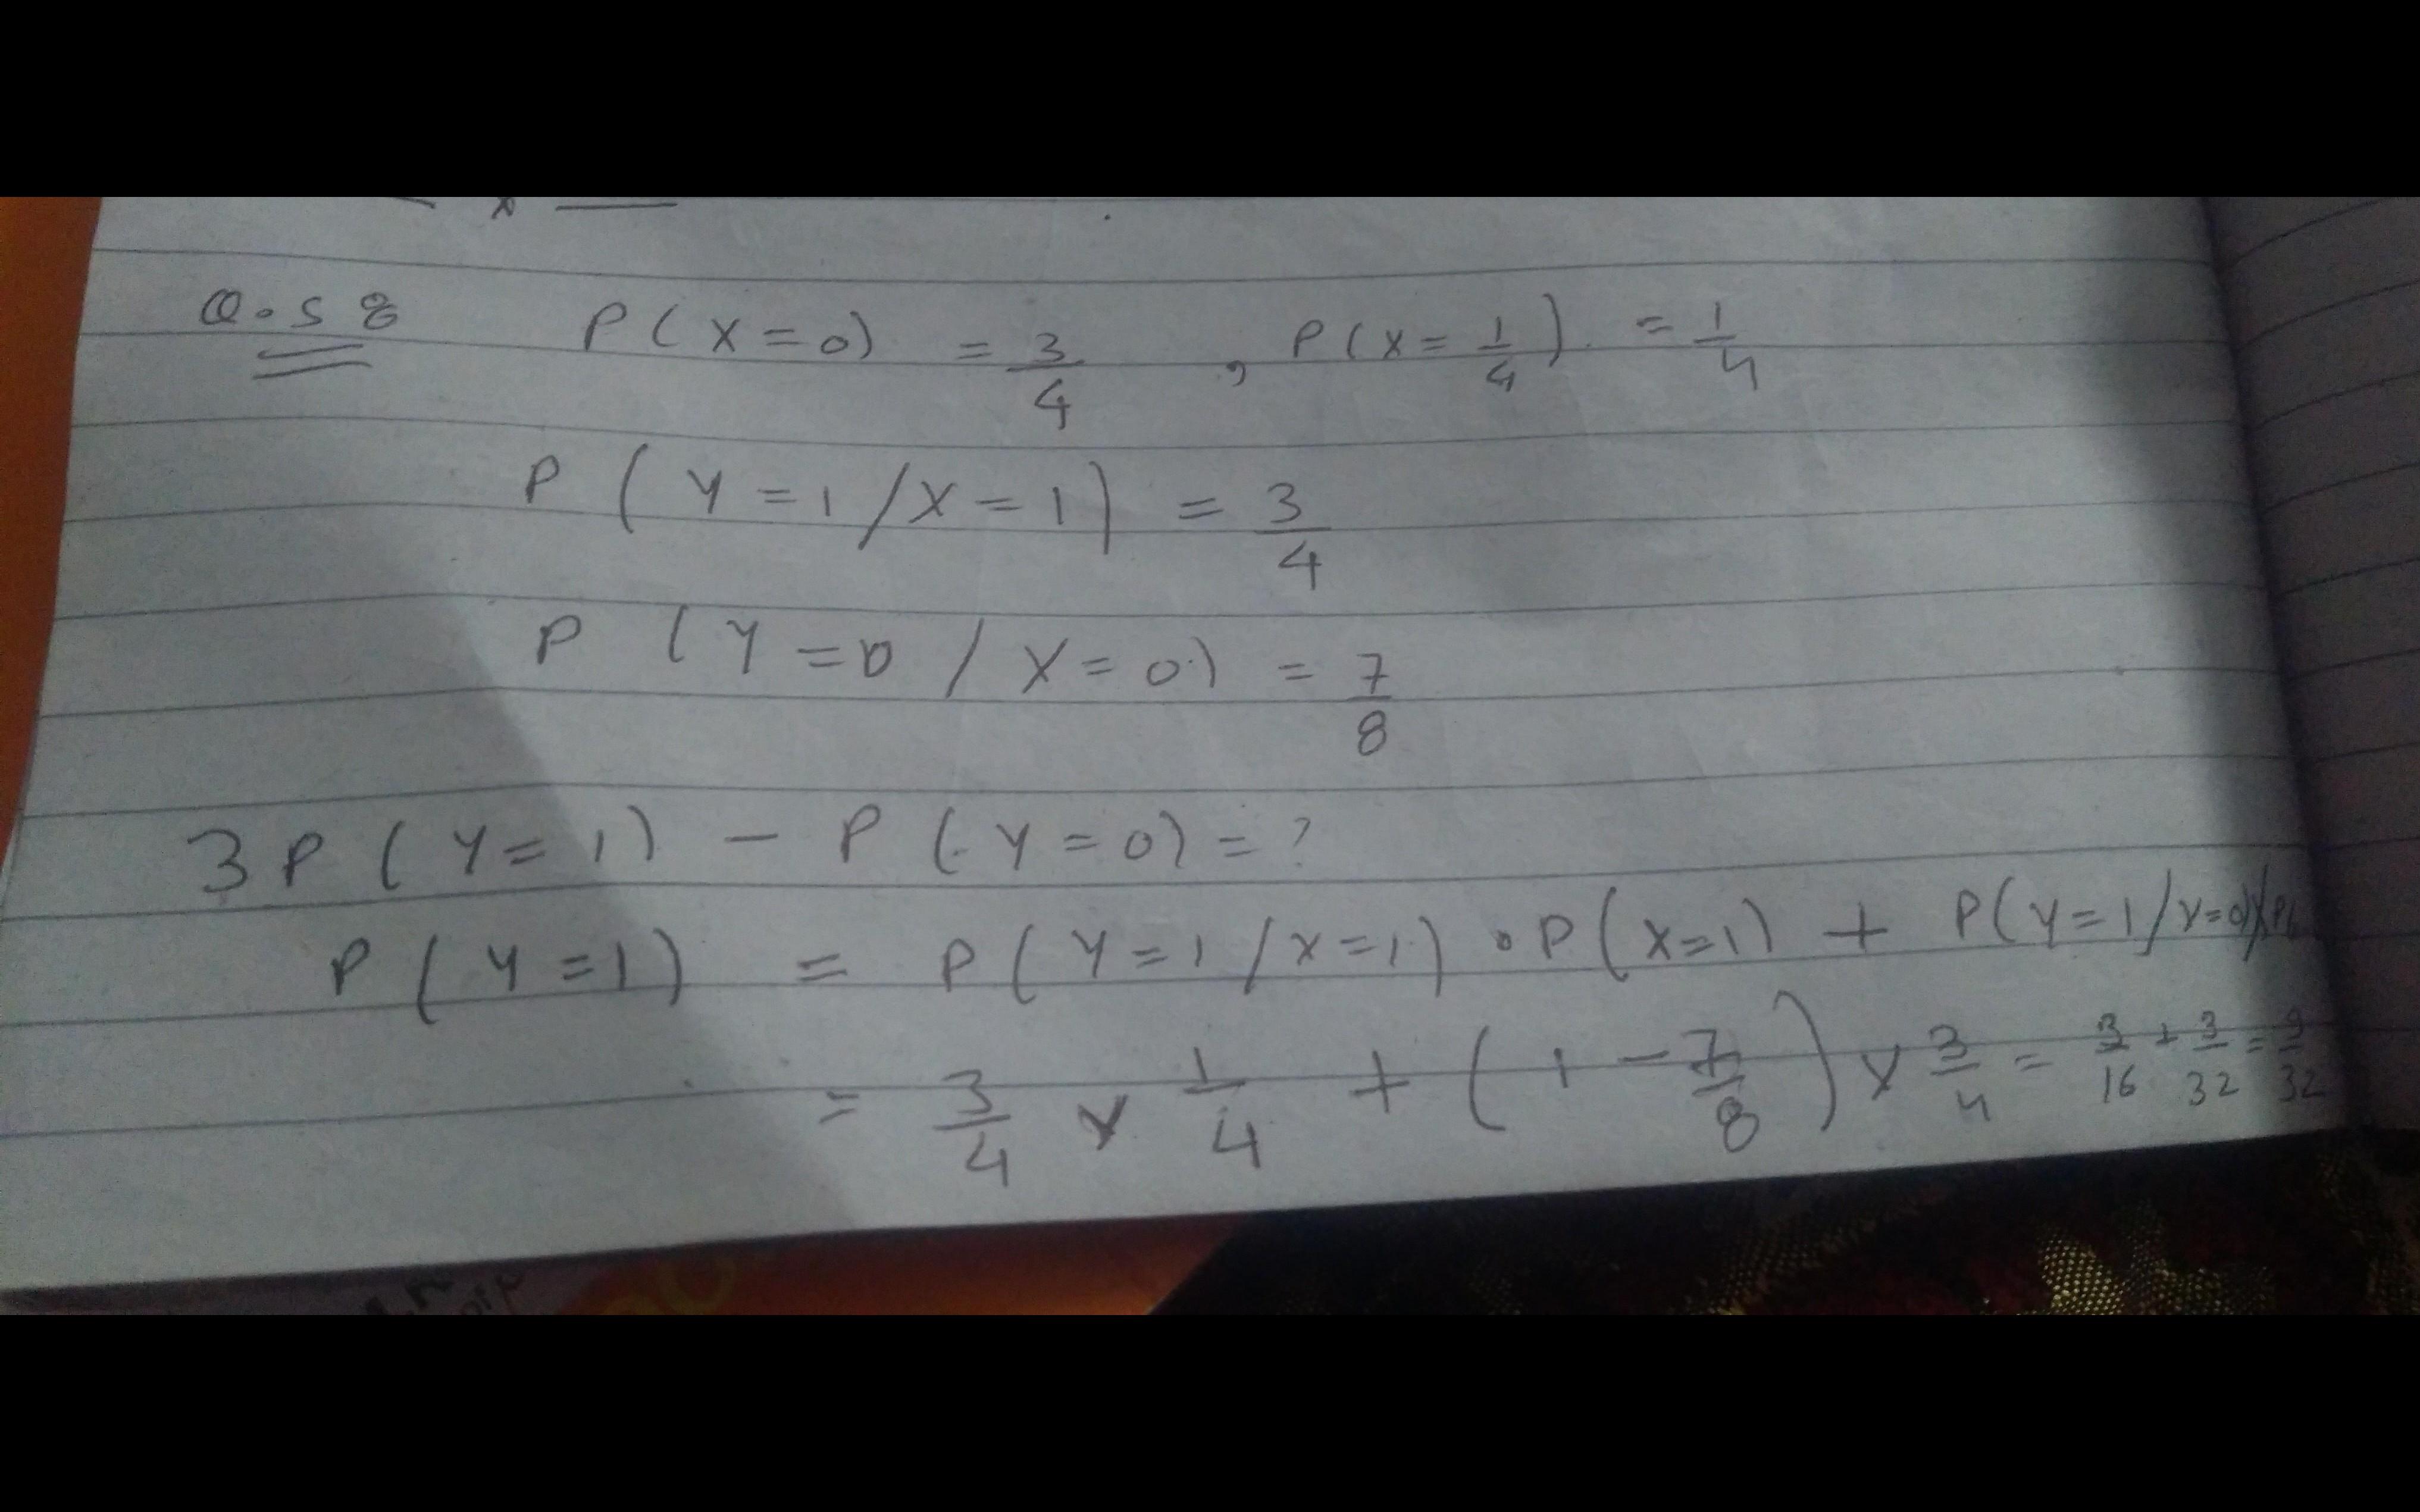 Q.58 P(X=0) = 3/4 , P(X=1/4). = 1/4
P(Y=1/X=1) = 3/4
P(Y=0/X=0) = 7/8
3P(Y=1) - P(Y=0) = ?
P(Y=1) = P(Y=1/X=1) . P(X=1) + P(Y=1/Y=0)
= 3/4 x 1/4 + (1-7/8) x 3/4 = 3/16 + 3/32 = 9/32